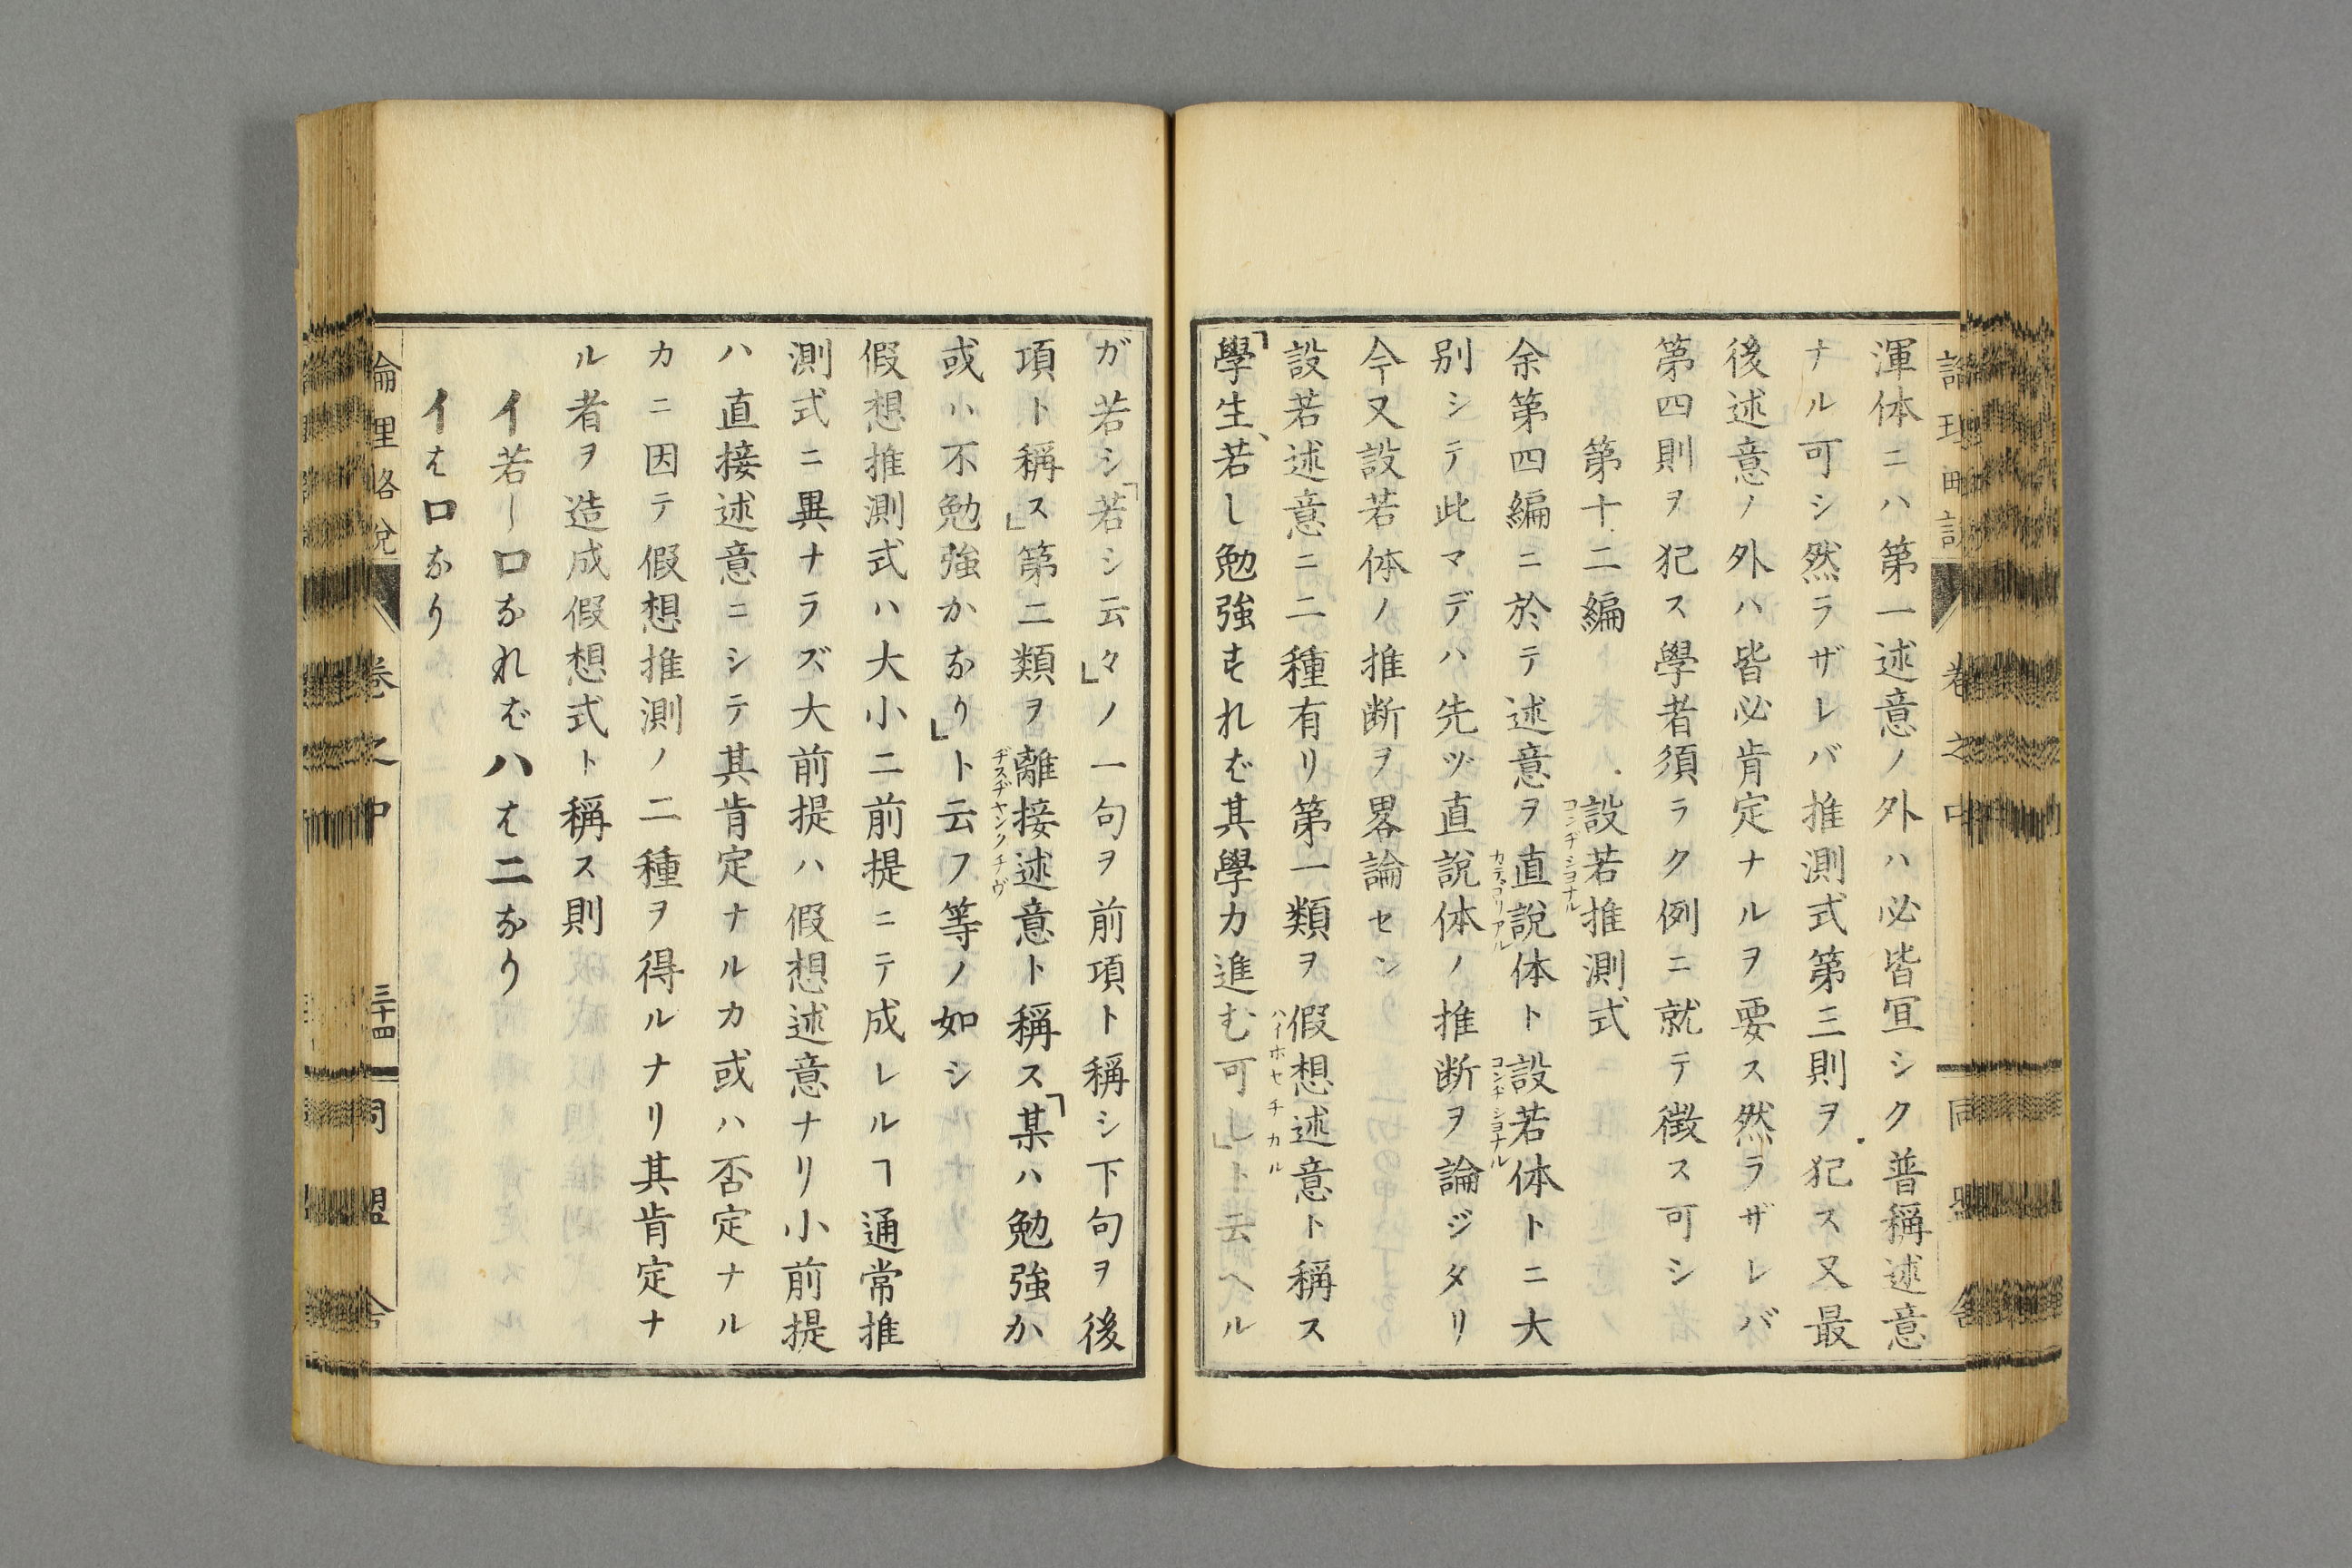 渾体ニハ第一述意ノ外ハ必皆冝シク普稱述意
ナル可シ然ラザレバ推測式第三則ヲ犯ス又最
後述意ノ外ハ皆必肯定ナルヲ要ス然ラザレバ
第四則ヲ犯ス學者須ラク例ニ就テ徴ス可シ
第十二編 設若推測式
コンヂシヨナル
余第四編ニ於テ述意ヲ直説体ト設若体トニ大
カテゴリアル コンヂシヨナル
別シテ此マデハ先ヅ直説体ノ推断ヲ論ジタリ
今又設若体ノ推断ヲ畧論セン
設若述意ニ二種有リ第一類ヲ假想述意ト稱ス
ハイホセチカル
「學生、若し勉強すれば其學力進む可し」ト云ヘル
ガ若シ「若シ云々」ノ一句ヲ前項ト稱シ下句ヲ後
項ト稱ス」第二類ヲ離接述意ト稱ス「某ハ勉強か
ヂスヂヤンクチヴ
或ハ不勉強かなり」ト云フ等ノ如シ
假想推測式ハ大小二前提ニテ成レルヿ通常推
測式ニ異ナラズ大前提ハ假想述意ナリ小前提
ハ直接述意ニシテ其肯定ナルカ或ハ否定ナル
カニ因テ假想推測ノ二種ヲ得ルナリ其肯定ナ
ル者ヲ造成假想式ト稱ス則
イ若し口なればハは二なり
イは口なり
卷之中
三十四
同盟舎